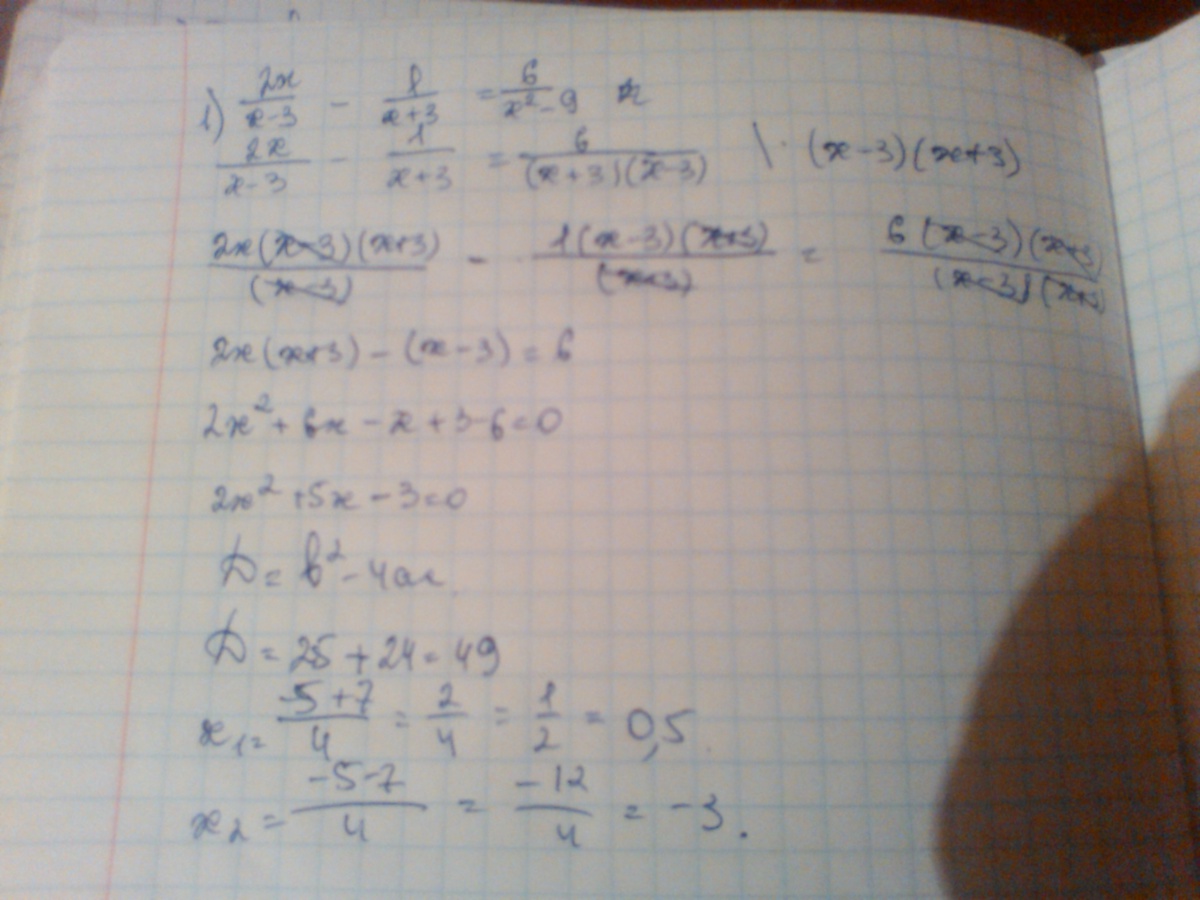 1) 2x/(x-3) - 1/(x+3) = 6/(x²-9)
2x/(x-3) - 1/(x+3) = 6/((x+3)(x-3)) \ · (x-3)(x+3)
2x(x-3)(x+3)/(x-3) - 1(x-3)(x+3)/(x+3) = 6(x-3)(x+3)/((x-3)(x+3))
2x(x+3) - (x-3) = 6
2x² + 6x - x + 3 - 6 = 0
2x² + 5x - 3 = 0
D = b² - 4ac
D = 25 + 24 = 49
x₁ = (-5+7)/4 = 2/4 = 1/2 = 0,5
x₂ = (-5-7)/4 = -12/4 = -3.